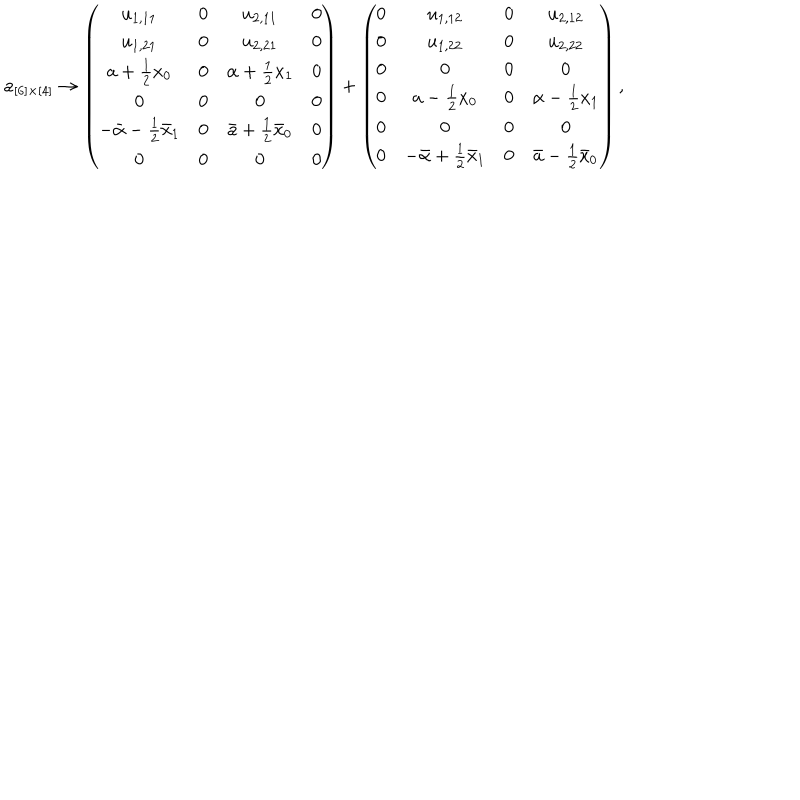 a_{[6]\times[4]} \to \begin{pmatrix} u_{1,11} & 0 & u_{2,11} & 0 \\ u_{1,21} & 0 & u_{2,21} & 0 \\ a + \frac{1}{2}x_0 & 0 & \alpha + \frac{1}{2}x_1 & 0 \\ 0 & 0 & 0 & 0 \\ -\bar{\alpha} - \frac{1}{2}\bar{x}_1 & 0 & \bar{a} + \frac{1}{2}\bar{x}_0 & 0 \\ 0 & 0 & 0 & 0 \end{pmatrix} + \begin{pmatrix} 0 & u_{1,12} & 0 & u_{2,12} \\ 0 & u_{1,22} & 0 & u_{2,22} \\ 0 & 0 & 0 & 0 \\ 0 & a - \frac{1}{2}x_0 & 0 & \alpha - \frac{1}{2}x_1 \\ 0 & 0 & 0 & 0 \\ 0 & -\bar{\alpha} + \frac{1}{2}\bar{x}_1 & 0 & \bar{a} - \frac{1}{2}\bar{x}_0 \end{pmatrix},